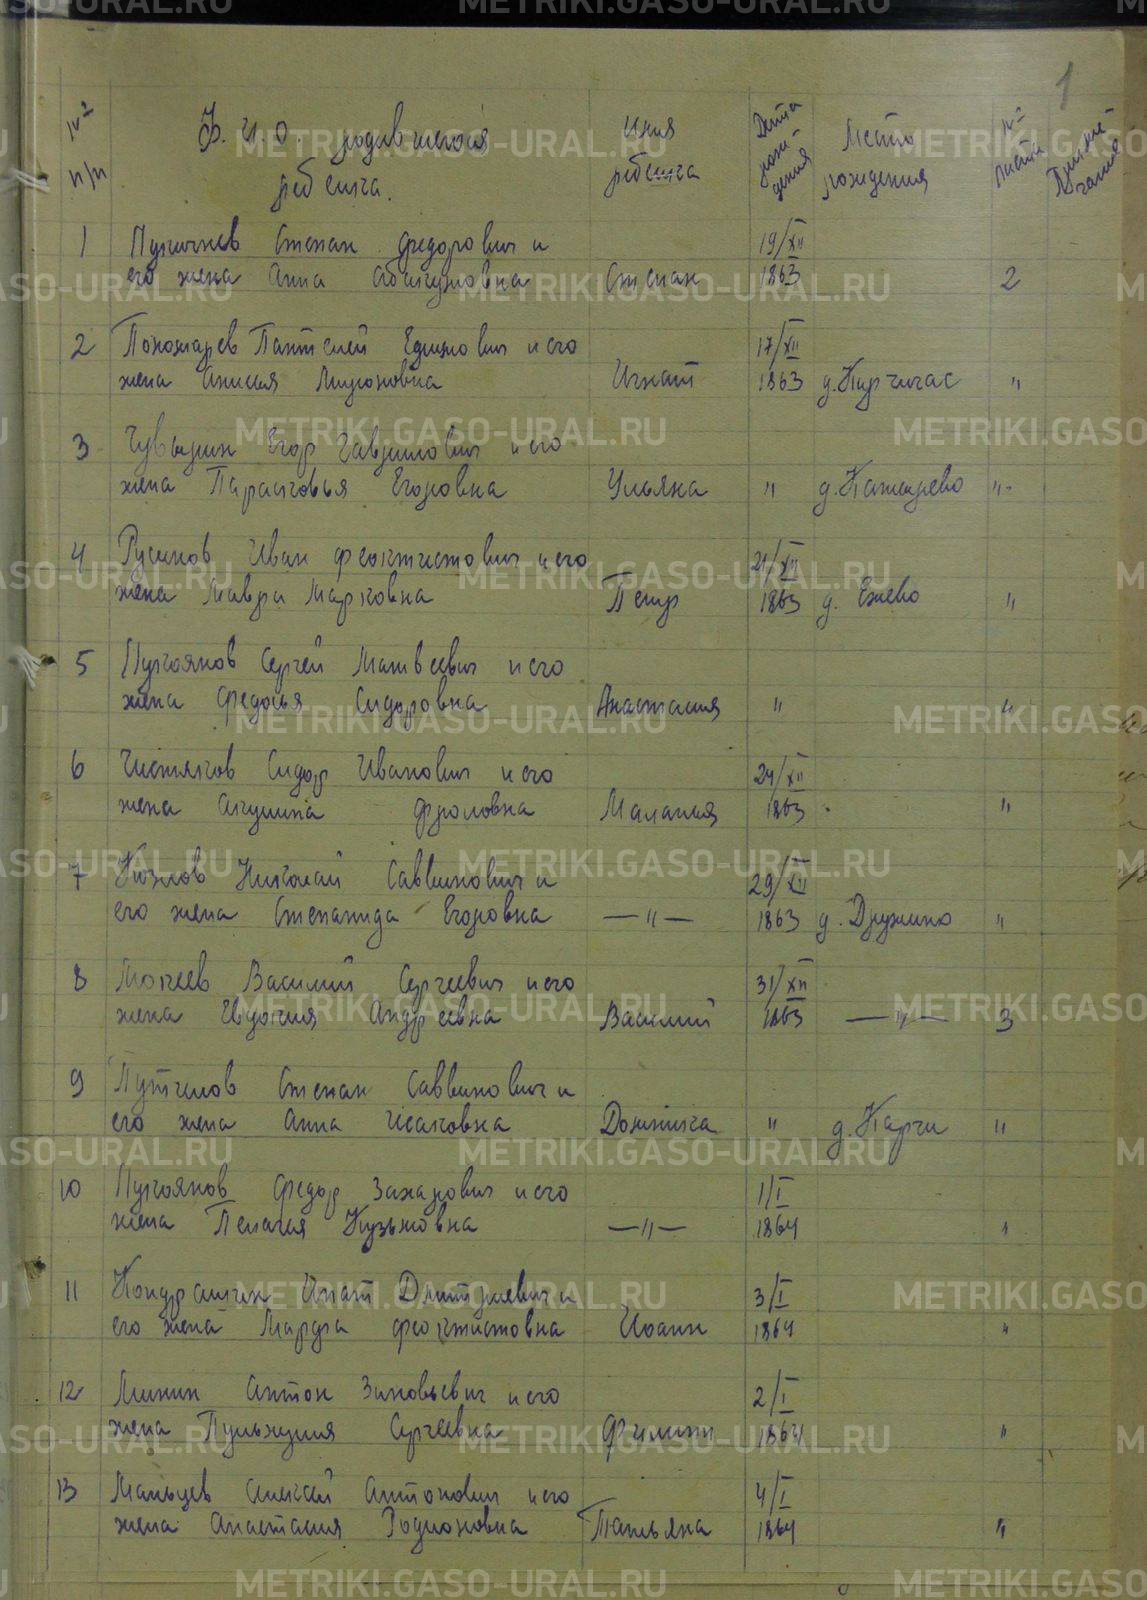 1
№ п/п
Ф.И.О. родившегося ребенка.
Имя ребенка
Дата рождения
Место рождения
№ листа
Примечания
1 Степан Федорович и 19/XII
его жена Анна Степан 1863 2
2 Пономарев Пантелей Ефимович и его 17/XII
жена Анисия Мироновна Игнат 1863 д. Киргигас "
3 Чувашин Егор Гаврилович и его
жена Парасковья Егоровна Ульяна " д. Катырево "
4 Русинов Иван Феоктистович и его 21/XII
жена Мавра Марковна Петр 1863 д. Ежево "
5 Лукоянов Сергей Матвеевич и его
жена Федосья Сидоровна Анастасия " "
6 Чистяков Сидор Иванович и его 24/XII
жена Акулина Фроловна Маланья 1863 "
7 Козлов Николай Саввинович и 29/XII
его жена Степанида Егоровна —"— 1863 д. Дружино "
8 Мокеев Василий Сергеевич и его 31/XII
жена Евдокия Андреевна Василий 1863 —"— 3
9 Путилов Степан Саввинович и
его жена Анна Исаковна Домника " д. Карги "
10 Лукоянов Федор Захарович и его 1/I
жена Пелагея Кузьмовна —"— 1864 "
11 Кондрашин Игнат Дмитриевич и 3/I
его жена Марфа Феоктистовна Иоанн 1864 "
12 Минин Антон Зиновьевич и его 2/I
жена Пульхерия Сергеевна Филипп 1864 "
13 Мальцев Алексей Антонович и его 4/I
жена Анастасия Родионовна Татьяна 1864 "
METRIKI.GASO-URAL.RU